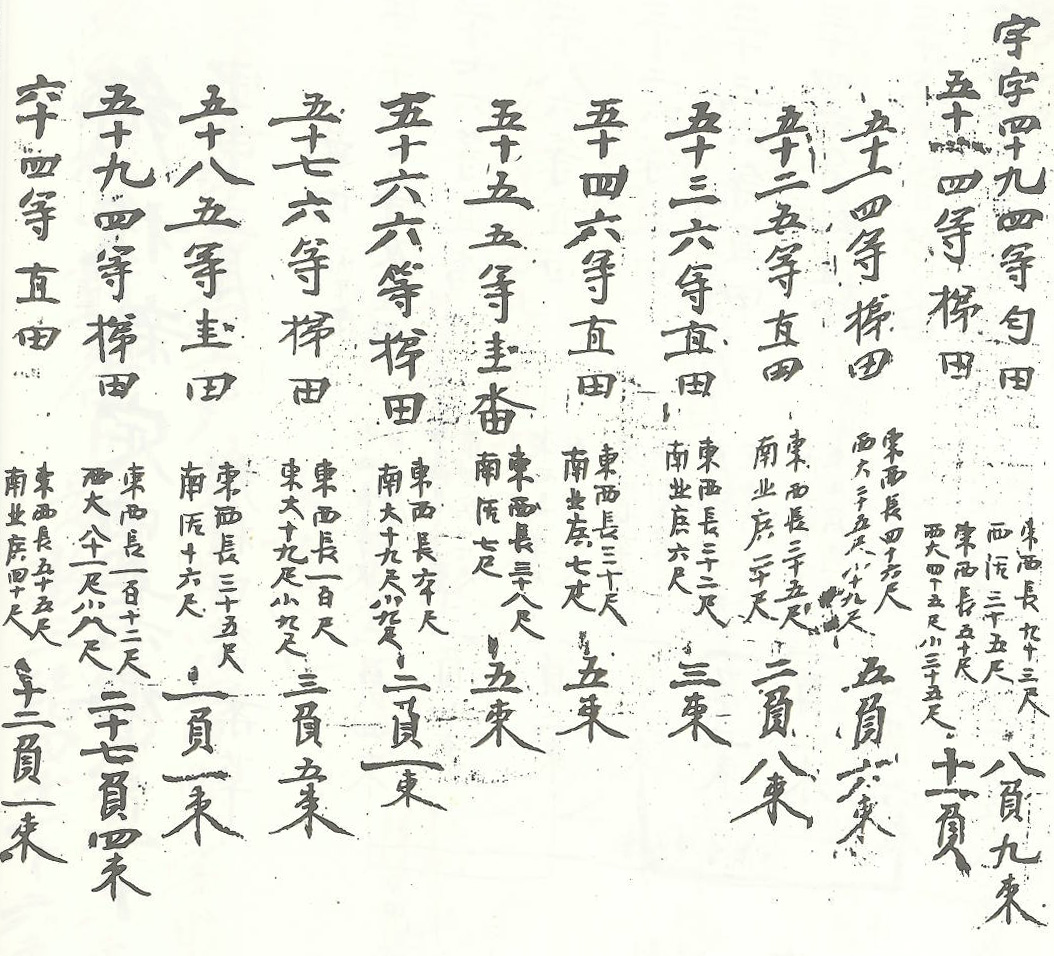 宇字四十九四等句田 東西長九十三尺 西活三十五尺 八負九束
五十 四等梯田 東西長五十尺 西大四十五尺小三十五尺 十一負
五十一四等梯田 東西長四十六尺 西大二十五尺小十九尺 五負六束
五十二五等直田 東西長三十五尺 南北広二十尺 二負八束
五十三六等直田 東西長二十二尺 南北広六尺 三束
五十四六等直田 東西長三十尺 南北広七尺 五束
五十五五等圭畓 東西長三十八尺 南活七尺 五束
五十六六等梯田 東西長六十尺 南大十九尺小九尺 二負一束
五十七六等梯田 東西長一百尺 東大十九尺小九尺 三負五束
五十八五等圭田 東西長三十五尺 南活十六尺 一負一束
五十九四等梯田 東西長一百十二尺 西大八十一尺小八尺 二十七負四束
六十四等直田 東西長五十五尺 南北広四十尺 十二負一束